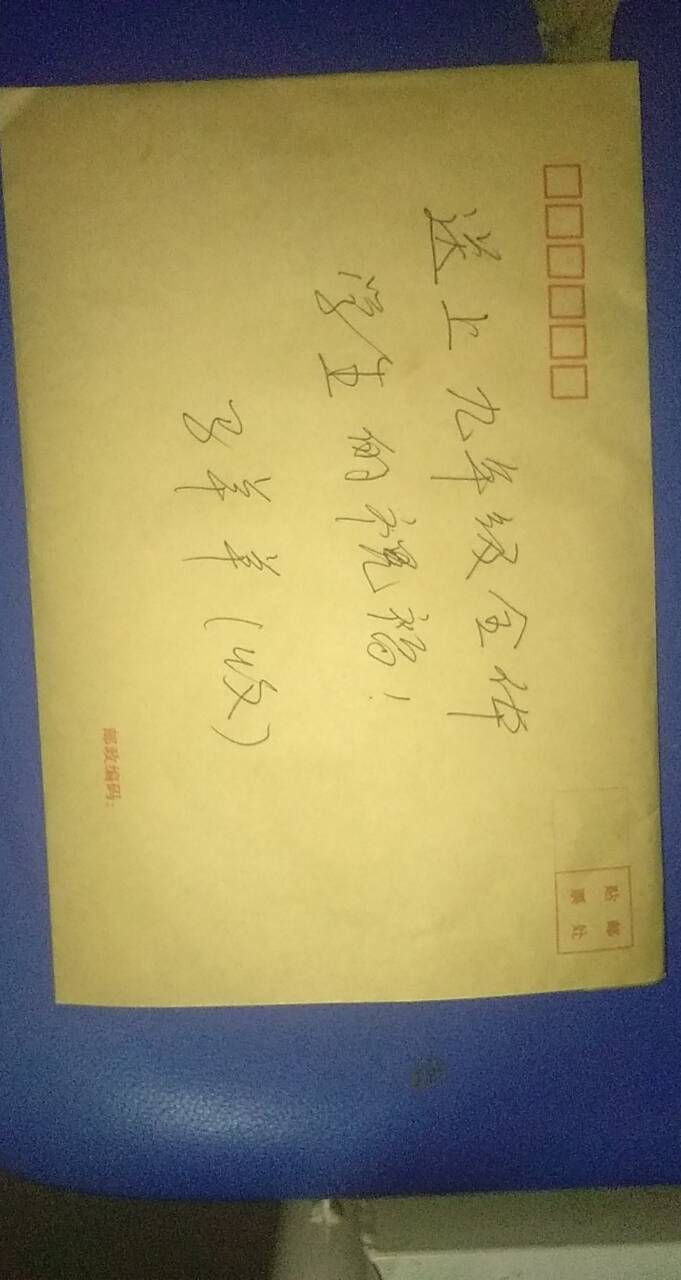 贴 邮
票 处
送上九年级全体
学生的祝福!
(收)
邮政编码: